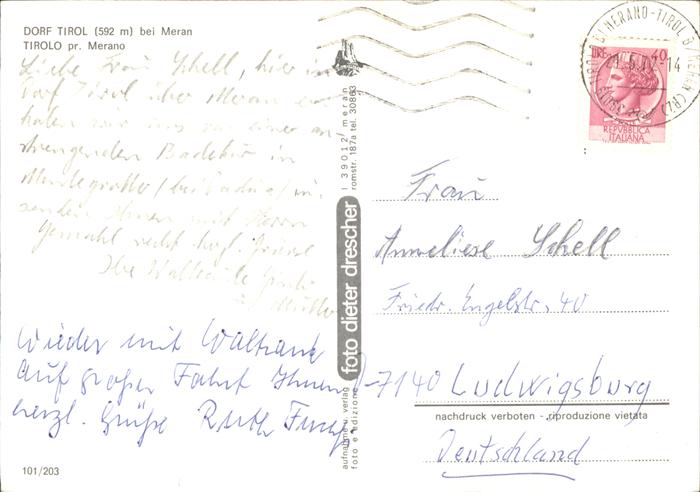 DORF TIROL (592 m) bei Meran
TIROLO pr. Merano
Liebe Frau Schell, hier in
Dorf Tirol über Meran er-
holen wir uns von einer an-
strengenden Badekur in
(bei Padua)
senden Ihnen mit Herrn
Gemahl recht herzl. Grüsse
Ihre
Mutter
Wieder mit Waltraud
auf großer Fahrt Ihnen
herzl. Grüße Ruth
101/203
foto dieter drescher
I 39012 meran
romstr. 187a tel. 30863
aufnahme u. verlag
foto e edizione
40
REPVBBLICA
ITALIANA
Frau
Anneliese Schell
Friedr. Engelstr. 40
D-7140 Ludwigsburg
nachdruck verboten - riproduzione vietata
Deutschland